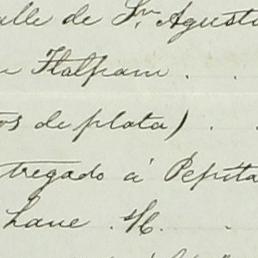 alle de Sn Agusti
n Tlalpam . .
os de plata) . .
tregado á Pepita
Lane . H. .